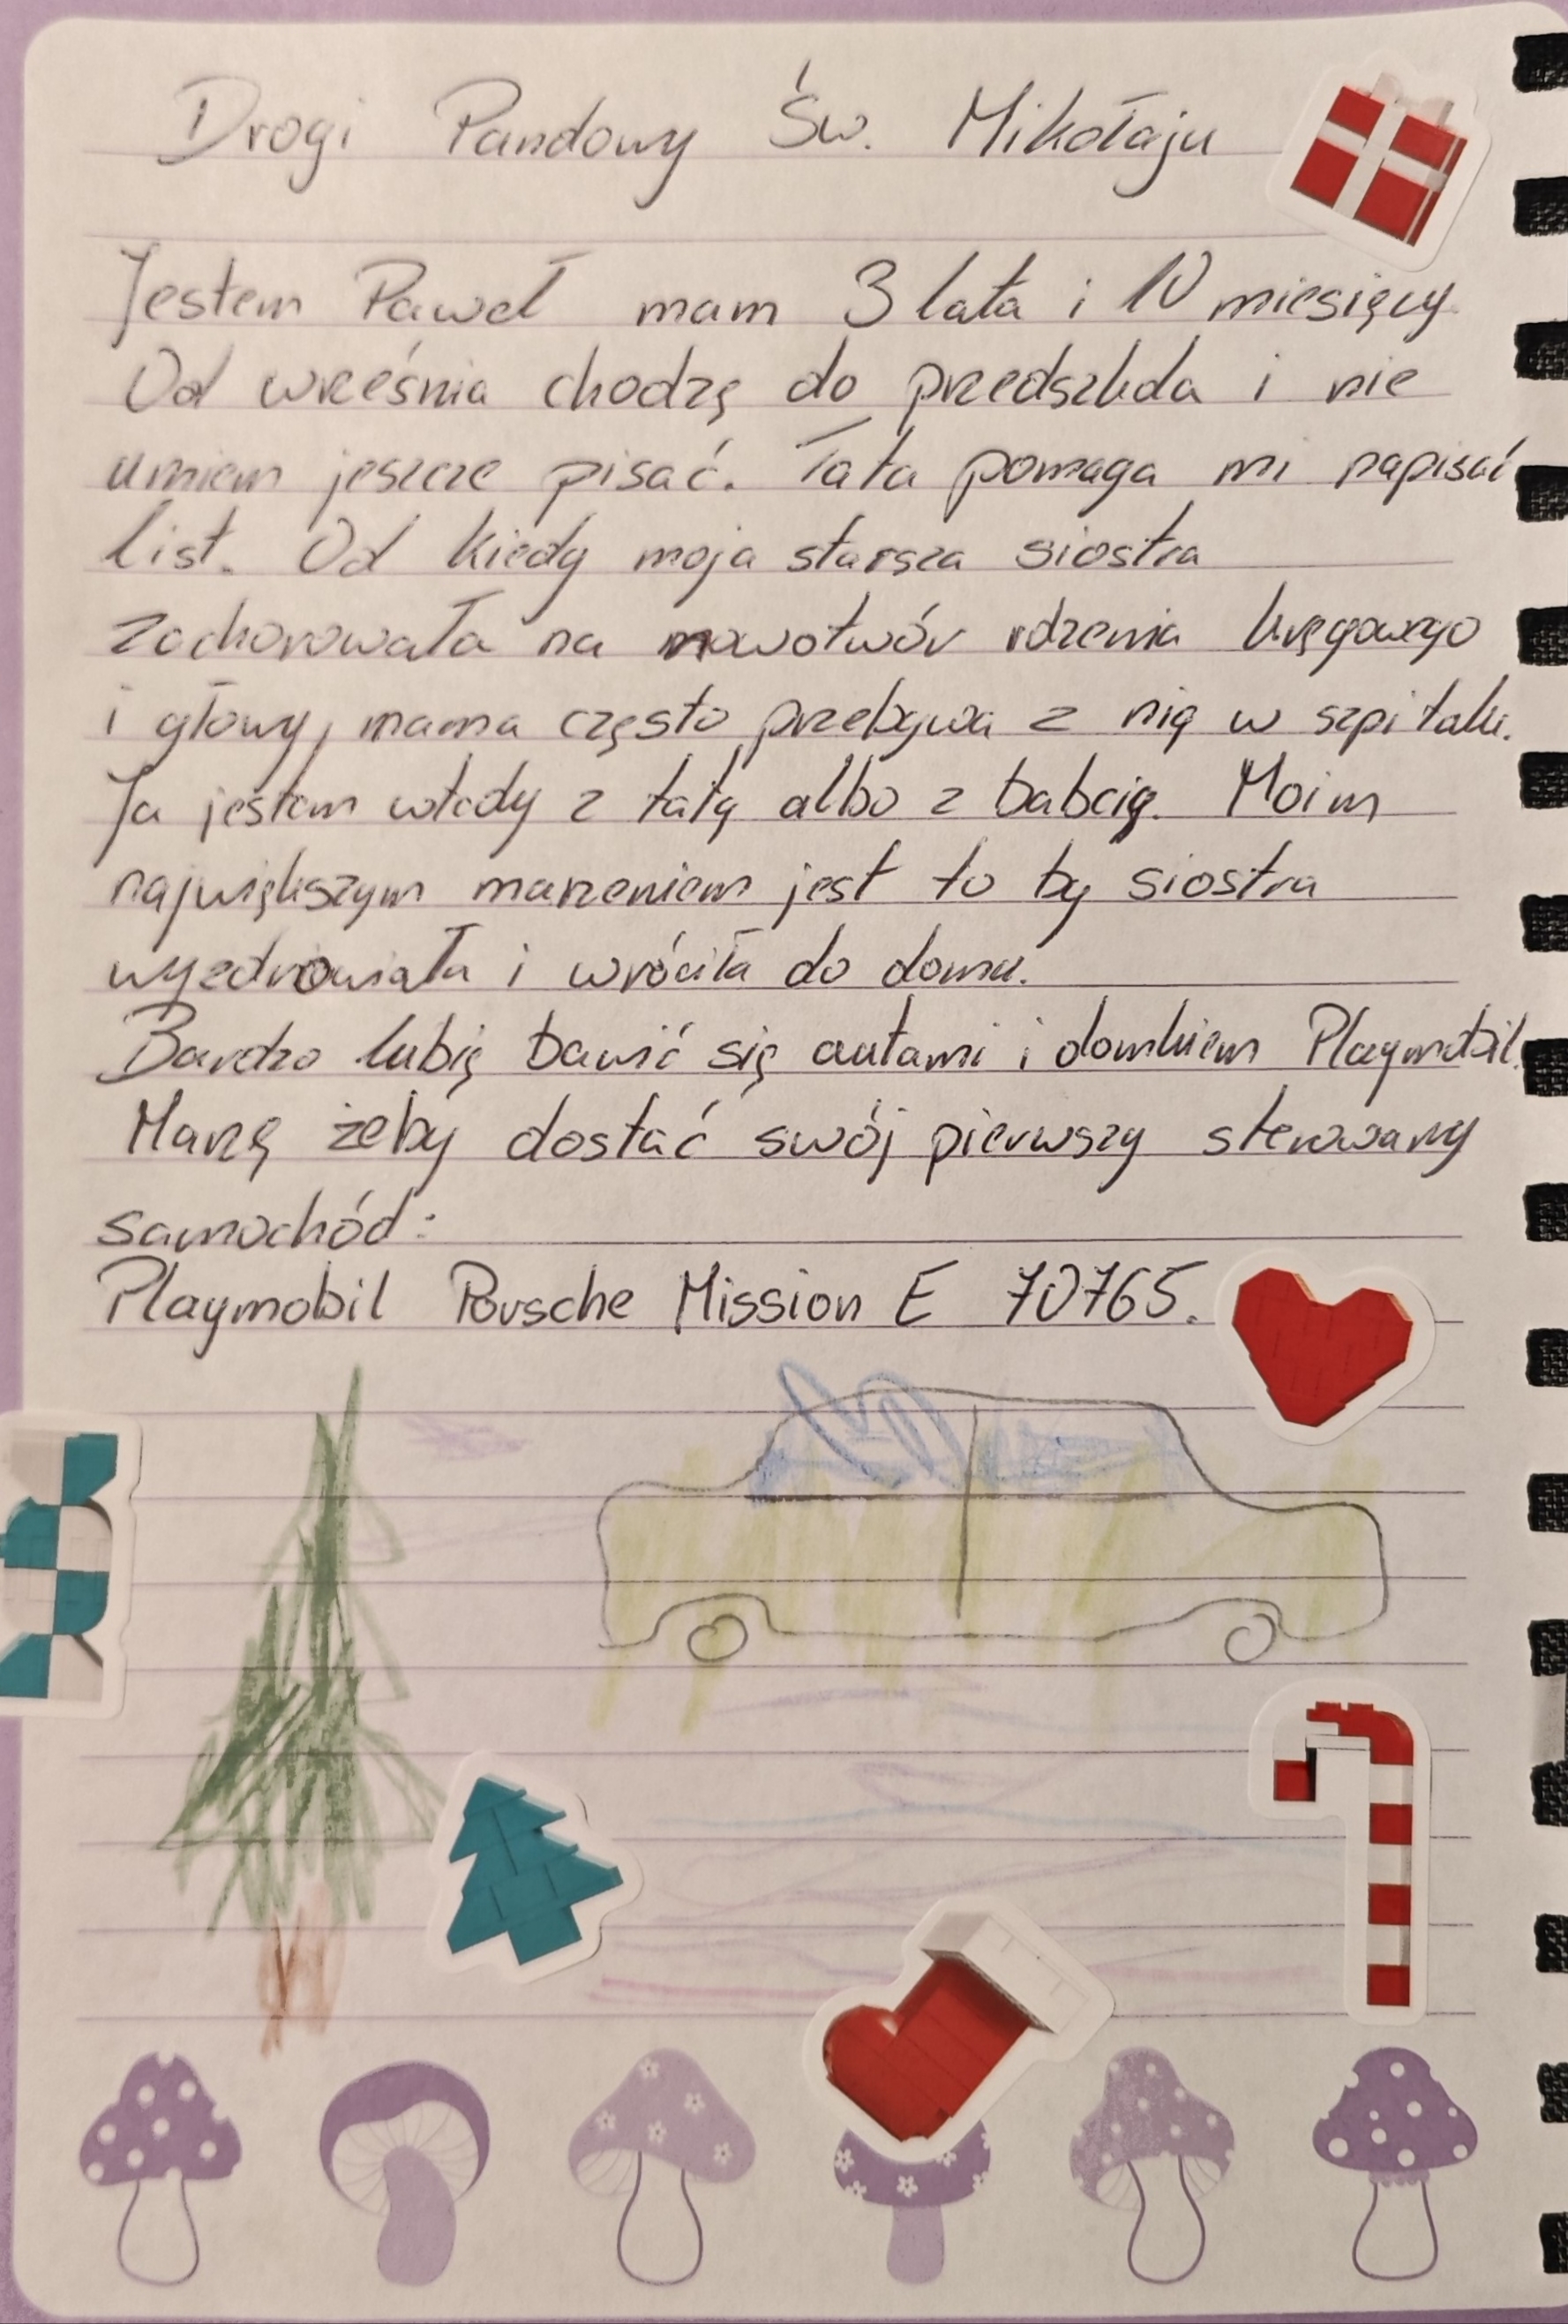 Drogi Pandowy Św. Mikołaju
Jestem Paweł mam 3 lata i 10 miesięcy.
Od września chodzę do przedszkola i nie
umiem jeszcze pisać. Tata pomaga mi napisać
list. Od kiedy moja starsza siostra
zachorowała na nowotwór rdzenia kręgowego
i głowy, mama często przebywa z nią w szpitalu.
Ja jestem wtedy z tatą albo z babcią. Moim
największym marzeniem jest to by siostra
wyzdrowiała i wróciła do domu.
Bardzo lubię bawić się autami i domkiem Playmobil.
Marzę żeby dostać swój pierwszy sterowany
samochód:
Playmobil Porsche Mission E 70765.